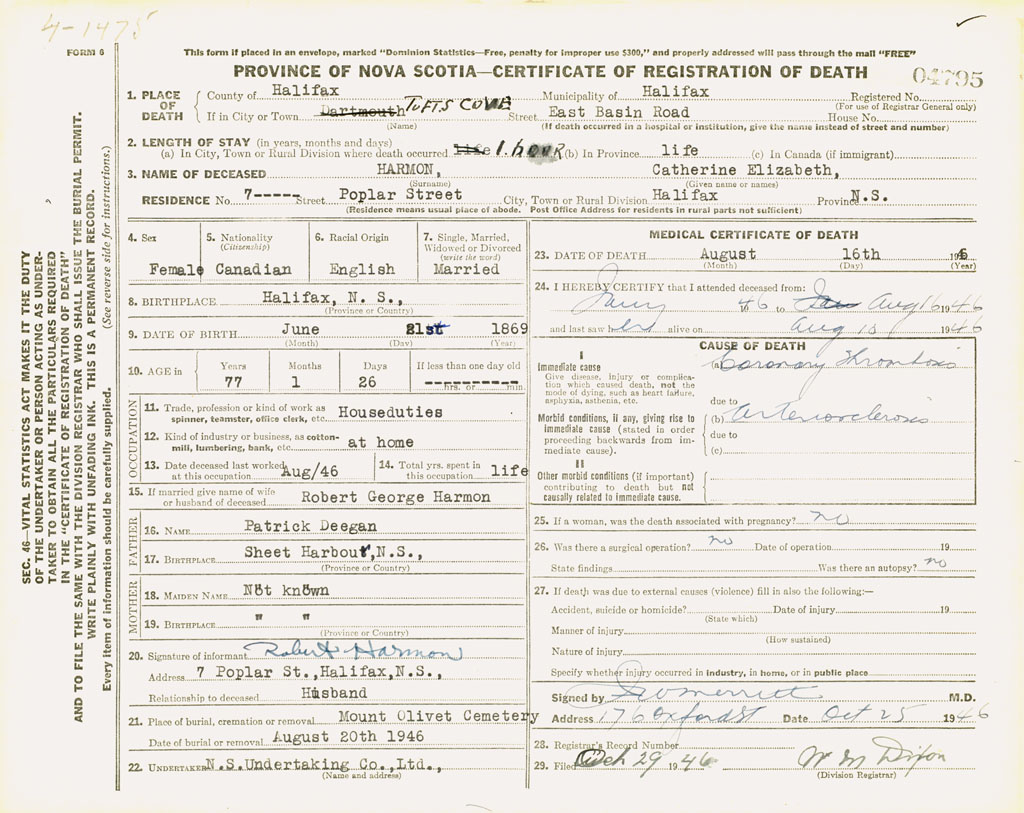 4-1475
FORM 6
This form if placed in an envelope, marked "Dominion Statistics—Free, penalty for improper use $300," and properly addressed will pass through the mail "FREE"
PROVINCE OF NOVA SCOTIA—CERTIFICATE OF REGISTRATION OF DEATH 04795
1. PLACE OF DEATH
County of Halifax Municipality of Halifax Registered No.
(For use of Registrar General only)
If in City or Town Dartmouth TUFTS COVE Street East Basin Road House No.
(Name) (If death occurred in a hospital or institution, give the name instead of street and number)
2. LENGTH OF STAY (in years, months and days)
(a) In City, Town or Rural Division where death occurred life 1. hOUR (b) In Province life (c) In Canada (if immigrant)
3. NAME OF DECEASED HARMON, Catherine Elizabeth,
(Surname) (Given name or names)
RESIDENCE No. 7----- Street Poplar Street City, Town or Rural Division Halifax Province N.S.
(Residence means usual place of abode. Post Office Address for residents in rural parts not sufficient)
4. Sex
Female
5. Nationality
(Citizenship)
Canadian
6. Racial Origin
English
7. Single, Married,
Widowed or Divorced
(write the word)
Married
8. BIRTHPLACE Halifax, N. S.,
(Province or Country)
9. DATE OF BIRTH June 21st 1869
(Month) (Day) (Year)
10. AGE in
Years Months Days If less than one day old
77 1 26 --------
hrs. or min.
OCCUPATION
11. Trade, profession or kind of work as
spinner, teamster, office clerk, etc. Houseduties
12. Kind of industry or business, as cotton-
mill, lumbering, bank, etc. at home
13. Date deceased last worked
at this occupation Aug/46
14. Total yrs. spent in
this occupation life
15. If married give name of wife
or husband of deceased Robert George Harmon
FATHER
16. NAME Patrick Deegan
17. BIRTHPLACE Sheet Harbour, N.S.,
(Province or Country)
MOTHER
18. MAIDEN NAME Not known
19. BIRTHPLACE " "
(Province or Country)
20. Signature of informant Robert Harmon
Address 7 Poplar St., Halifax, N.S.,
Relationship to deceased Husband
21. Place of burial, cremation or removal Mount Olivet Cemetery
Date of burial or removal August 20th 1946
22. UNDERTAKER N.S. Undertaking Co., Ltd.,
(Name and address)
MEDICAL CERTIFICATE OF DEATH
23. DATE OF DEATH August 16th 196
(Month) (Day) (Year)
24. I HEREBY CERTIFY that I attended deceased from:
46 to Aug 16 1946
and last saw her alive on Aug 1946
CAUSE OF DEATH
I
Immediate cause
Give disease, injury or complica-
tion which caused death, not the
mode of dying, such as heart failure,
asphyxia, asthenia, etc.
(a) Coronary Thrombosis
due to
Morbid conditions, if any, giving rise to
immediate cause (stated in order
proceeding backwards from im-
mediate cause).
(b) Arteriosclerosis
due to
(c)
II
Other morbid conditions (if important)
contributing to death but not
causally related to immediate cause.
25. If a woman, was the death associated with pregnancy? no
26. Was there a surgical operation? no Date of operation 19
State findings Was there an autopsy? no
27. If death was due to external causes (violence) fill in also the following:—
Accident, suicide or homicide? Date of injury 19
(State which)
Manner of injury
(How sustained)
Nature of injury
Specify whether injury occurred in industry, in home, or in public place
Signed by Merritt M.D.
Address 176 Oxford St Date Oct 25 1946
28. Registrar's Record Number
29. Filed Oct 29 1946 W M Dixon
(Division Registrar)
SEC. 46—VITAL STATISTICS ACT MAKES IT THE DUTY
OF THE UNDERTAKER OR PERSON ACTING AS UNDER-
TAKER TO OBTAIN ALL THE PARTICULARS REQUIRED
IN THE "CERTIFICATE OF REGISTRATION OF DEATH"
AND TO FILE THE SAME WITH THE DIVISION REGISTRAR WHO SHALL ISSUE THE BURIAL PERMIT.
WRITE PLAINLY WITH UNFADING INK. THIS IS A PERMANENT RECORD.
Every item of information should be carefully supplied. (See reverse side for instructions.)